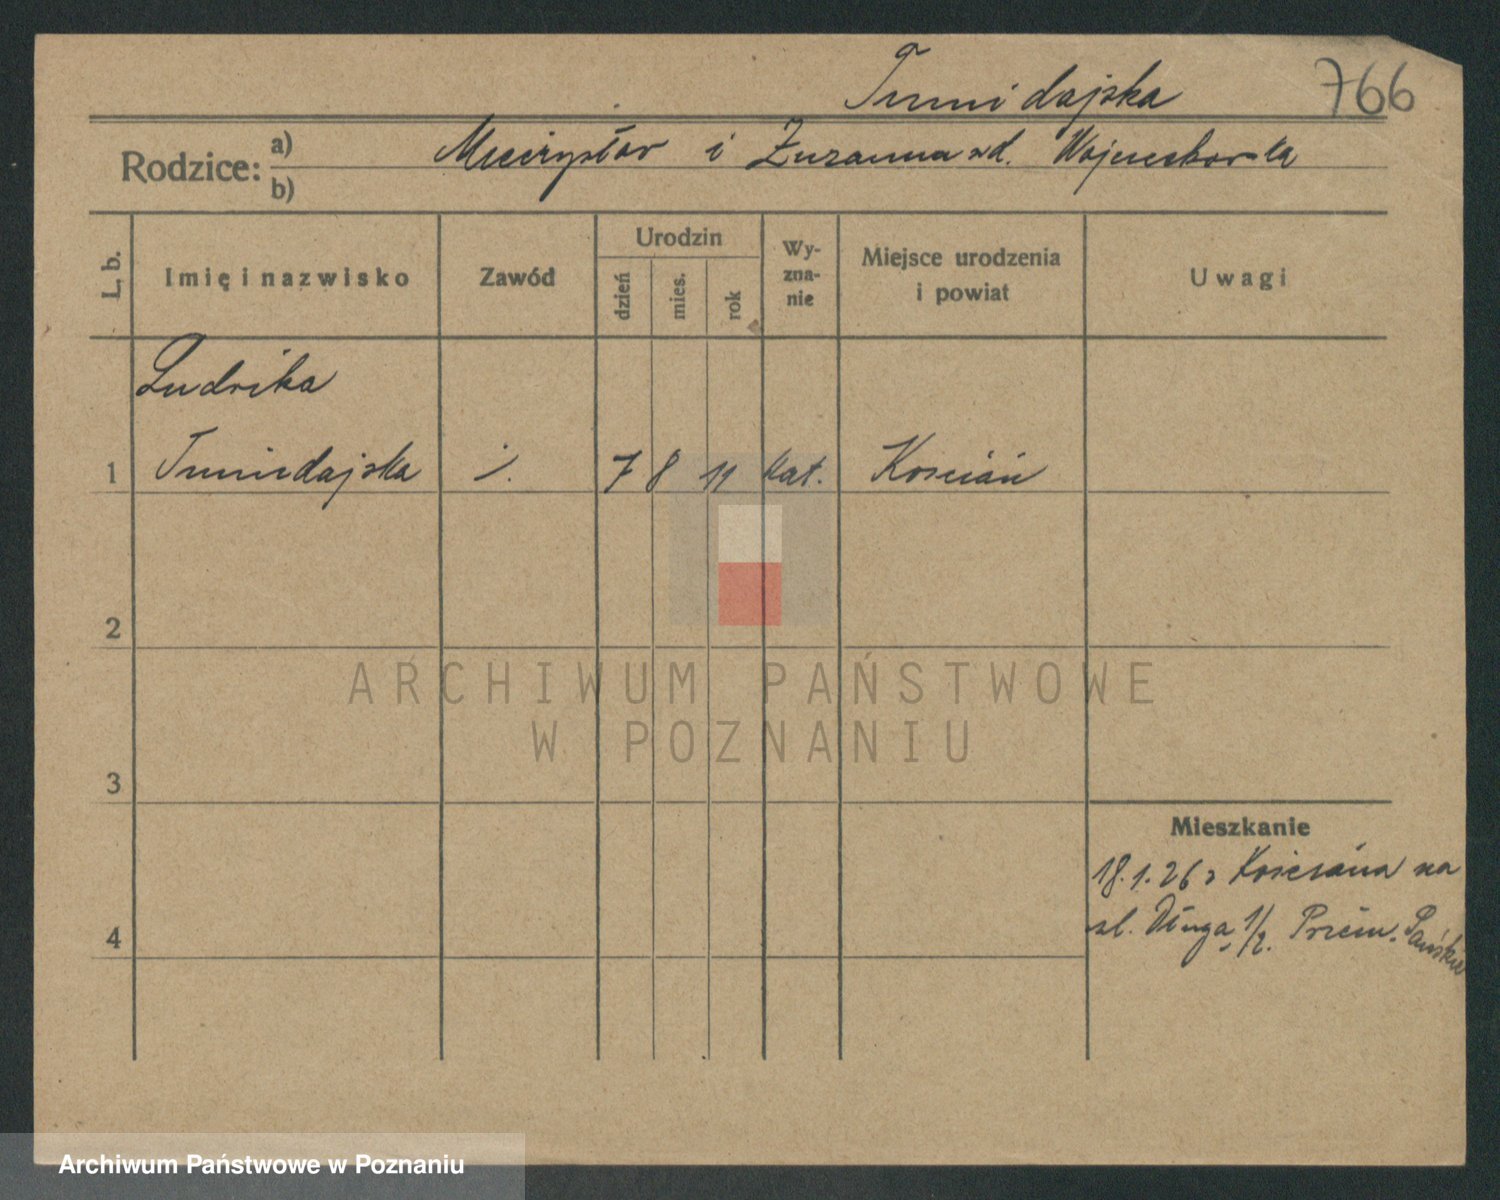 Tumidajska 766
Rodzice: a) Mieczysław i Zuzanna zd. Wojciechowska
b)
L. b. Imię i nazwisko Zawód Urodzin dzień mies. rok Wy-zna-nie Miejsce urodzenia i powiat Uwagi
Ludwika
1 Tumidajska 7 8 11 kat. Kościan
2
3
Mieszkanie
18.1.26 z Kościana na
4 ul. Długa 1/2. Przem. Pańskie
ARCHIWUM PAŃSTWOWE
W POZNANIU
Archiwum Państwowe w Poznaniu